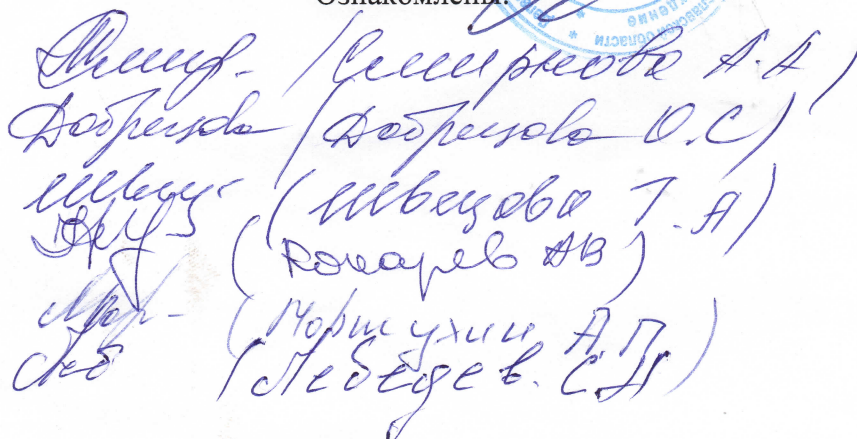 Ознакомлены:
(Смирнова А.А)
Добрецова (Добрецова О.С)
(Швецова Т.А)
(Кокарев АВ)
(Мортухин А.П)
Леб (Лебедев. С.Н)